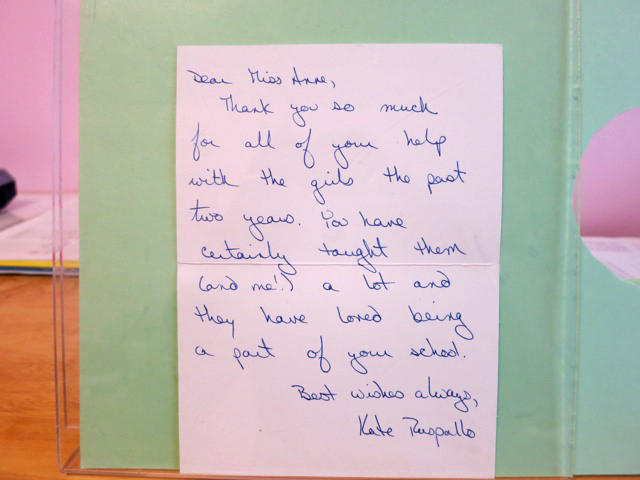 Dear Miss Anne,
Thank you so much
for all of your help
with the girls the past
two years. You have
certainly taught them
(and me!) a lot and
they have loved being
a part of your school.
Best wishes always,
Kate